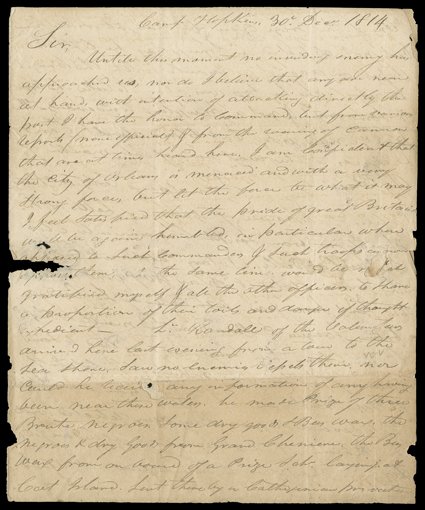 Camp Hopkins 30th Decr 1814
Sir,
Untill this moment no invading enemy has
approached us, nor do I believe that any are near
at hand, with intention of attacking directly the
post I have the honor to command, but from various
reports (none official) & from the evening of cannon
that are at times heard here, I am confident that
the City of Orleans is menaced and with a very
strong force, but let the force be what it may
I feel satisfied that the pride of great Britain
will be again humbled, in particular where
opposed to such Commanders & such troops as now
oppose them, at the same time would be
gratified myself & all the other officers to share
a proportion of their toils and danger if thought
expedient — Lt. Randall of the Volunteers
arrived here last evening from a tour to the
Sea shore, Saw no Enemies Vessels there, nor
could he receive any information of any having
been near these waters. he made Prize of three
Brute negroes some dry goods & Bees wax, the
negroes & dry Goods from Grand Cheniere, the Bees
wax from on board of a Prize Schr. laying at
Cat Island Sent there by a Carthagenian privateer